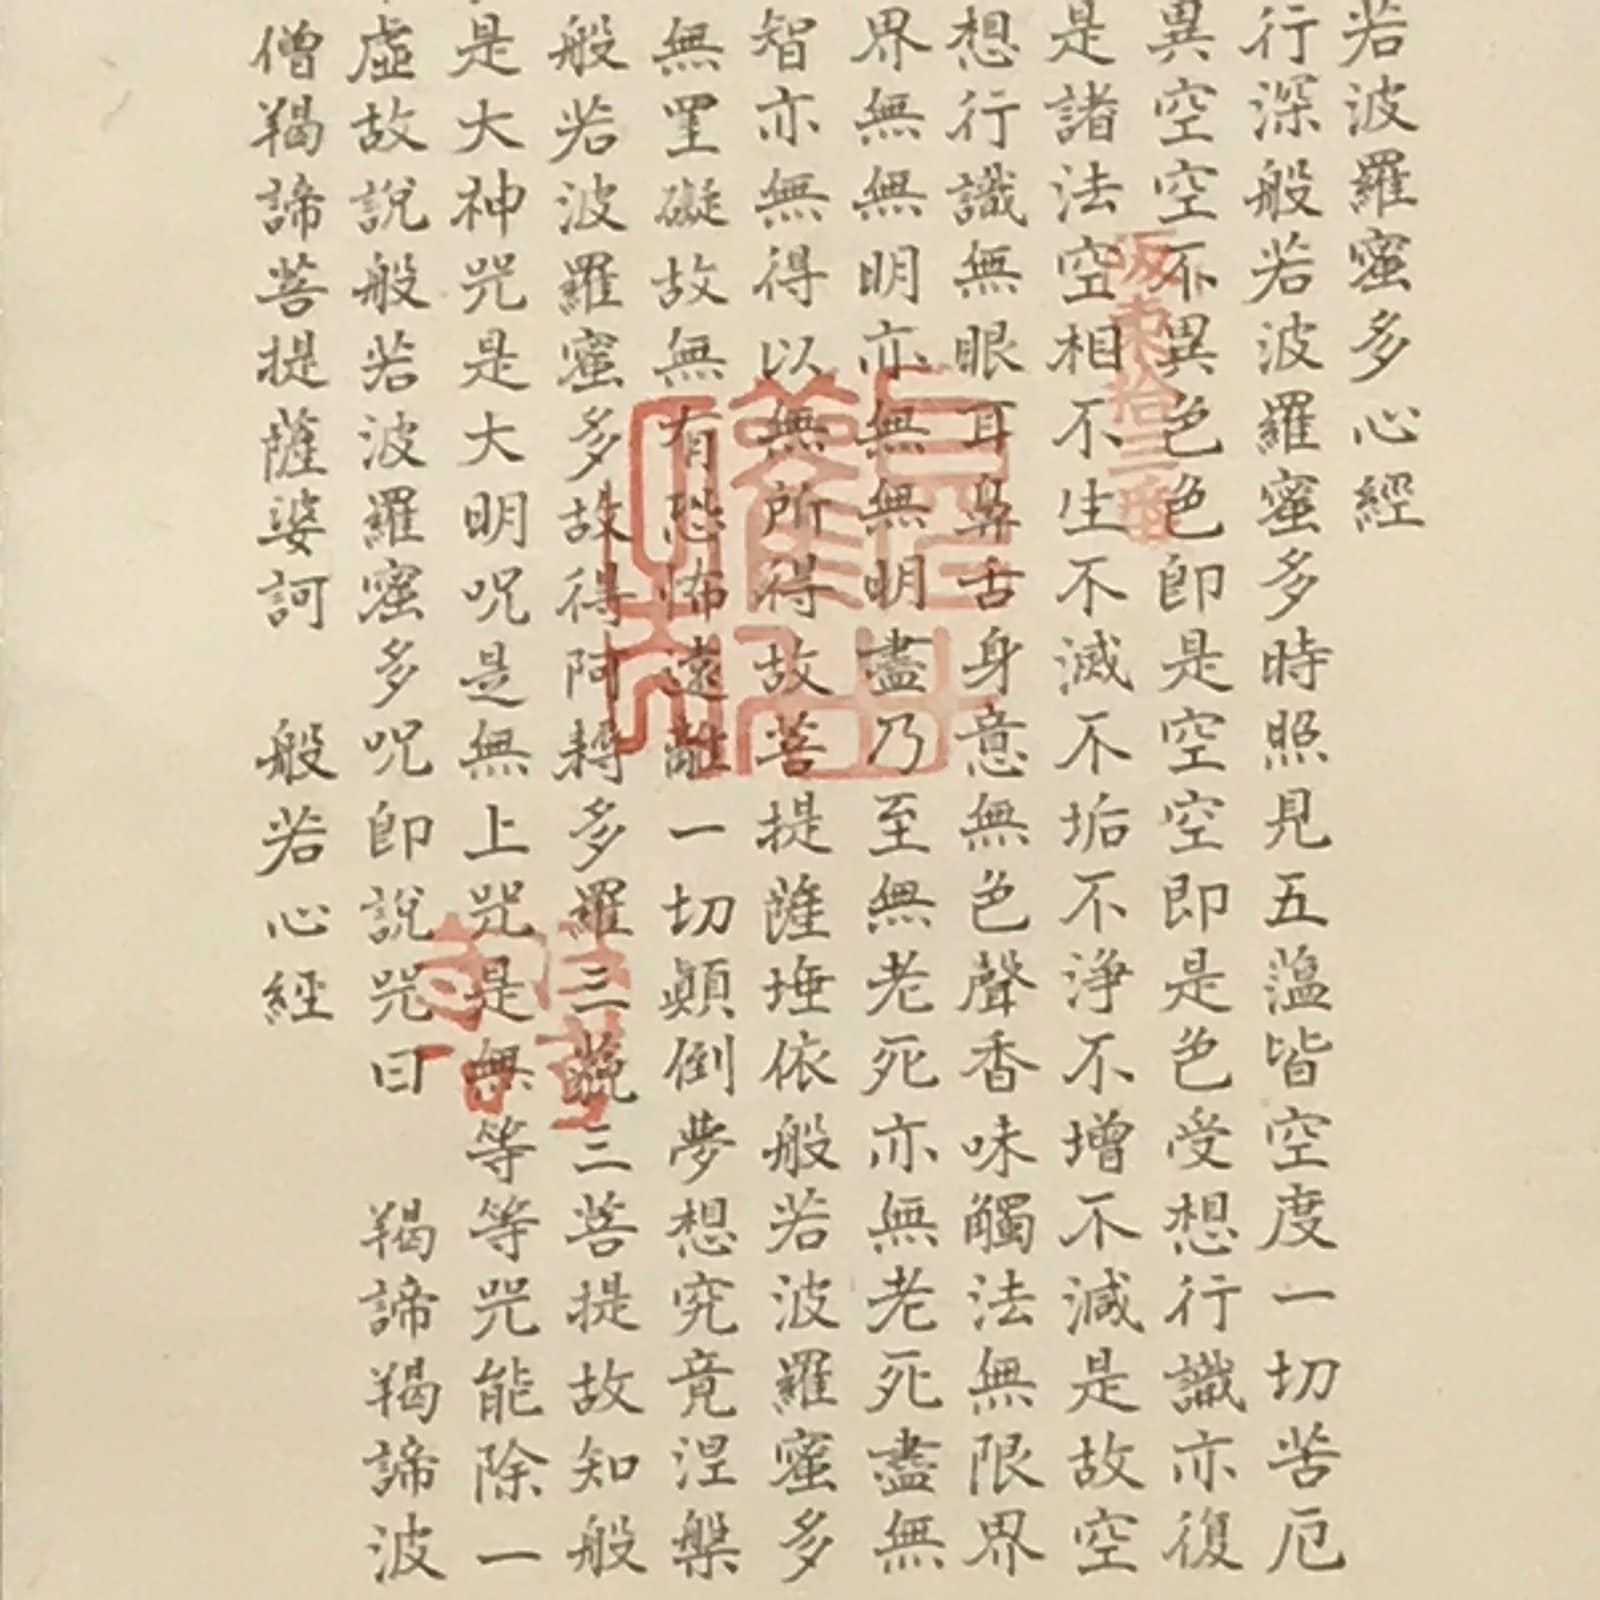 若波羅蜜多心經
行深般若波羅蜜多時照見五蘊皆空度一切苦厄
異空空不異色色即是空空即是色受想行識亦復
是諸法空相不生不滅不垢不淨不增不減是故空
想行識無眼耳鼻舌身意無色聲香味觸法無限界
界無無明亦無無明盡乃至無老死亦無老死盡無
智亦無無得以無所得故菩提薩埵依般若波羅蜜多
無罣礙故無有恐怖遠離一切顛倒夢想究竟涅槃
般若波羅蜜多故得阿耨多羅三藐三菩提故知般
是大神咒是大明呪是無上咒是無等等咒能除一
虛故說般若波羅蜜多呪即說咒曰 羯諦羯諦波
僧羯諦菩提薩婆訶 般若心経
坂東拾三番